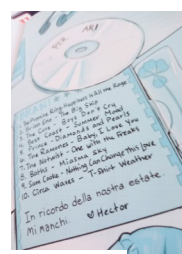 PER ARI
1. The Smashing Pumpkins
2. The Big Ship
3. The Cure - Boys Don't Cry
4. Best Coast - Summer Mood
5. Prince - Diamonds and Pearls
6. The Ramones - Baby, I Love You
7. The Notwist - One with the Freaks
8. Baths - Miasma Sky
9. Sam Cooke - Nothing Can Change This Love
10. Circa Waves - T-Shirt Weather
In ricordo della nostra estate.
Mi manchi. Hector